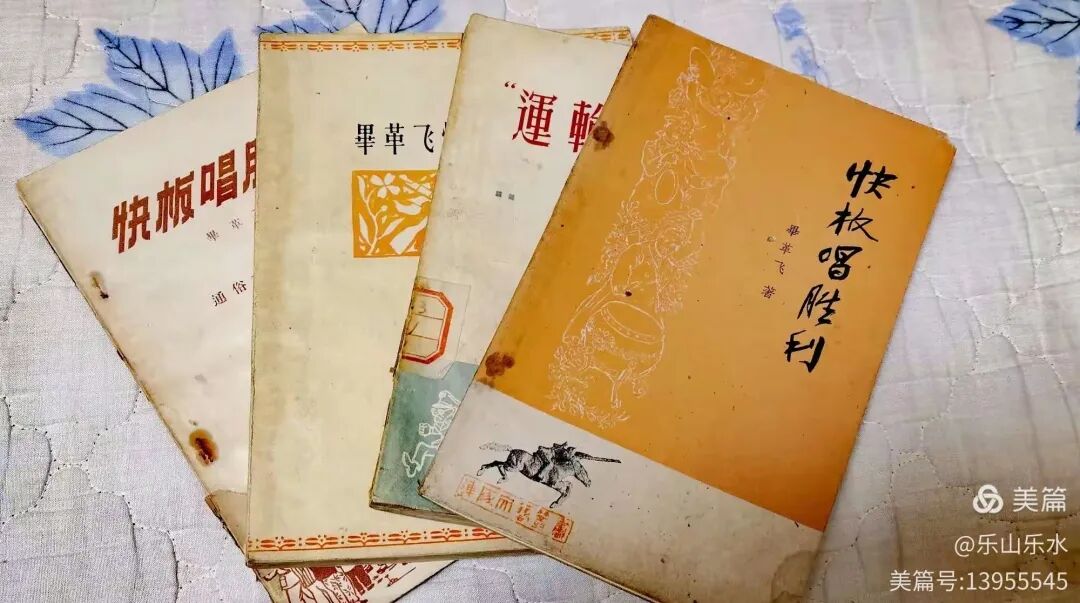 快板唱
畢革
通俗
畢革飞
“運輸
快板唱胜利
畢革飞著
美篇
@乐山乐水
美篇号:13955545